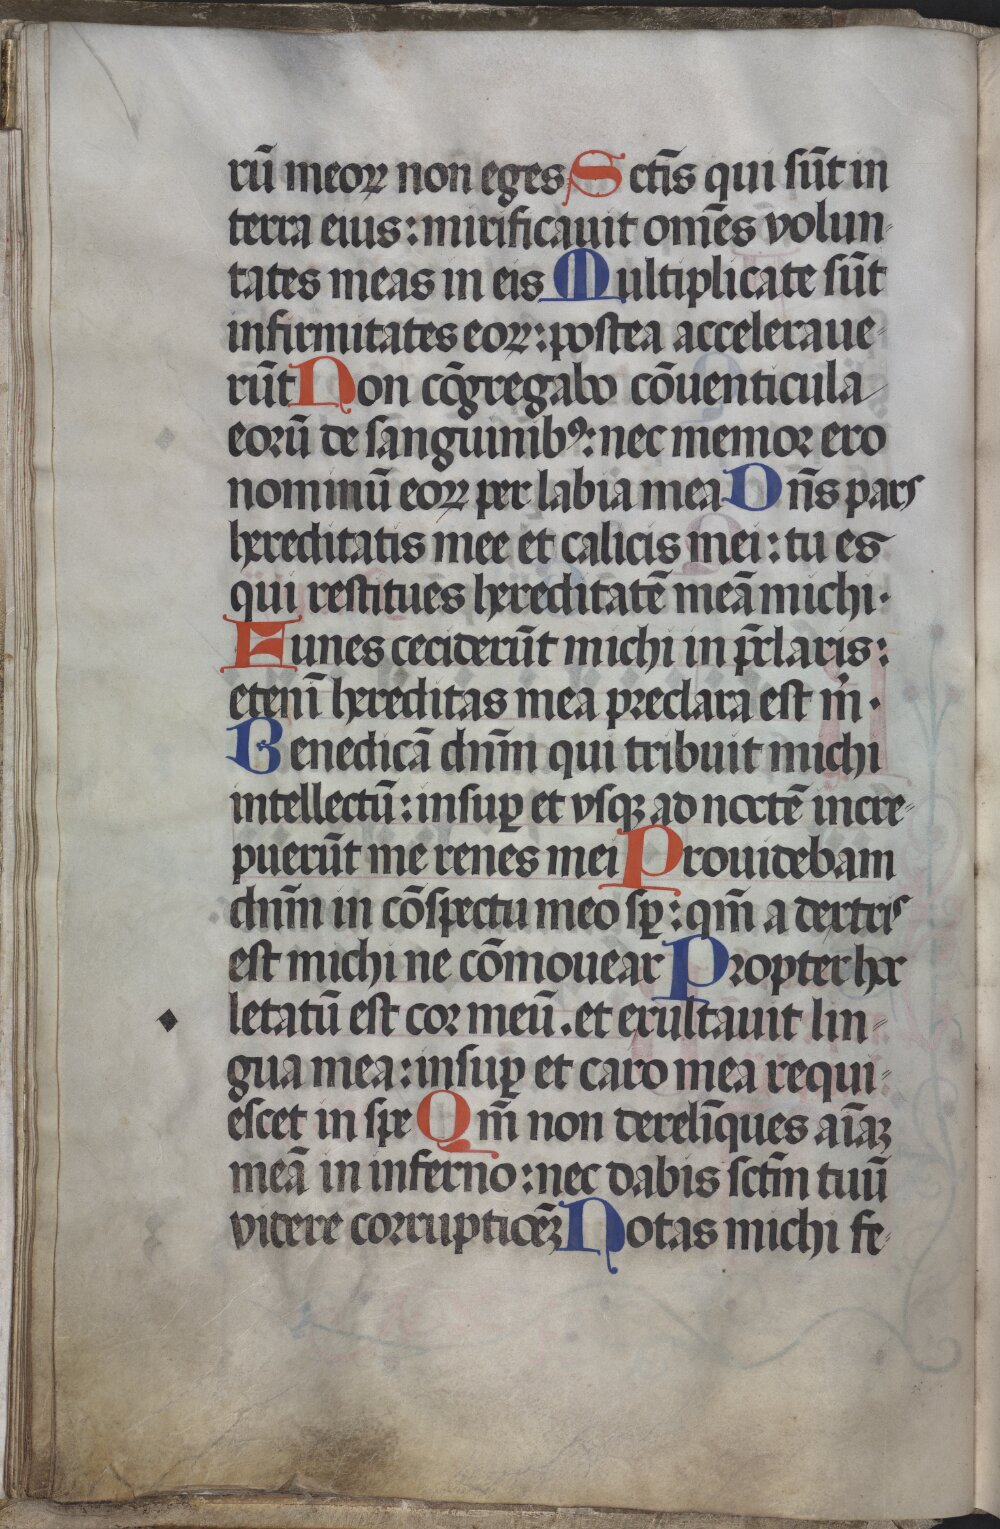 rū meoꝝ non eges Sctīs qui sūt in
terra eius: mirificauit omēs volun-
tates meas in eis Multiplicate sūt
infirmitates eoꝝ: postea accelераue-
rūt Non cōgregabo cōuenticula
eorū de sanguinibꝰ: nec memor ero
nominū eoꝝ per labia mea Dn̄s pars
hereditatis mee et calicis mei: tu es
qui restitues hereditatē meā michi.
Funes ceciderūt michi in p̄claris:
etenī hereditas mea preclara est m̄.
Benedicā dn̄m qui tribuit michi
intellectū: insuꝑ et vsqꝫ ad noctē incre-
puerūt me renes mei Prouidebam
dn̄m in cōspectu meo sꝑ: qm̄ a dextris
est michi ne cōmouear Propter hoc
letatū est cor meū. et exultauit lin-
gua mea: insuꝑ et caro mea requi-
escet in spe Qm̄ non derelīques aīaꝫ
meā in inferno: nec dabis sctm̄ tuū
videre corruptiōeꝫ Notas michi fe-